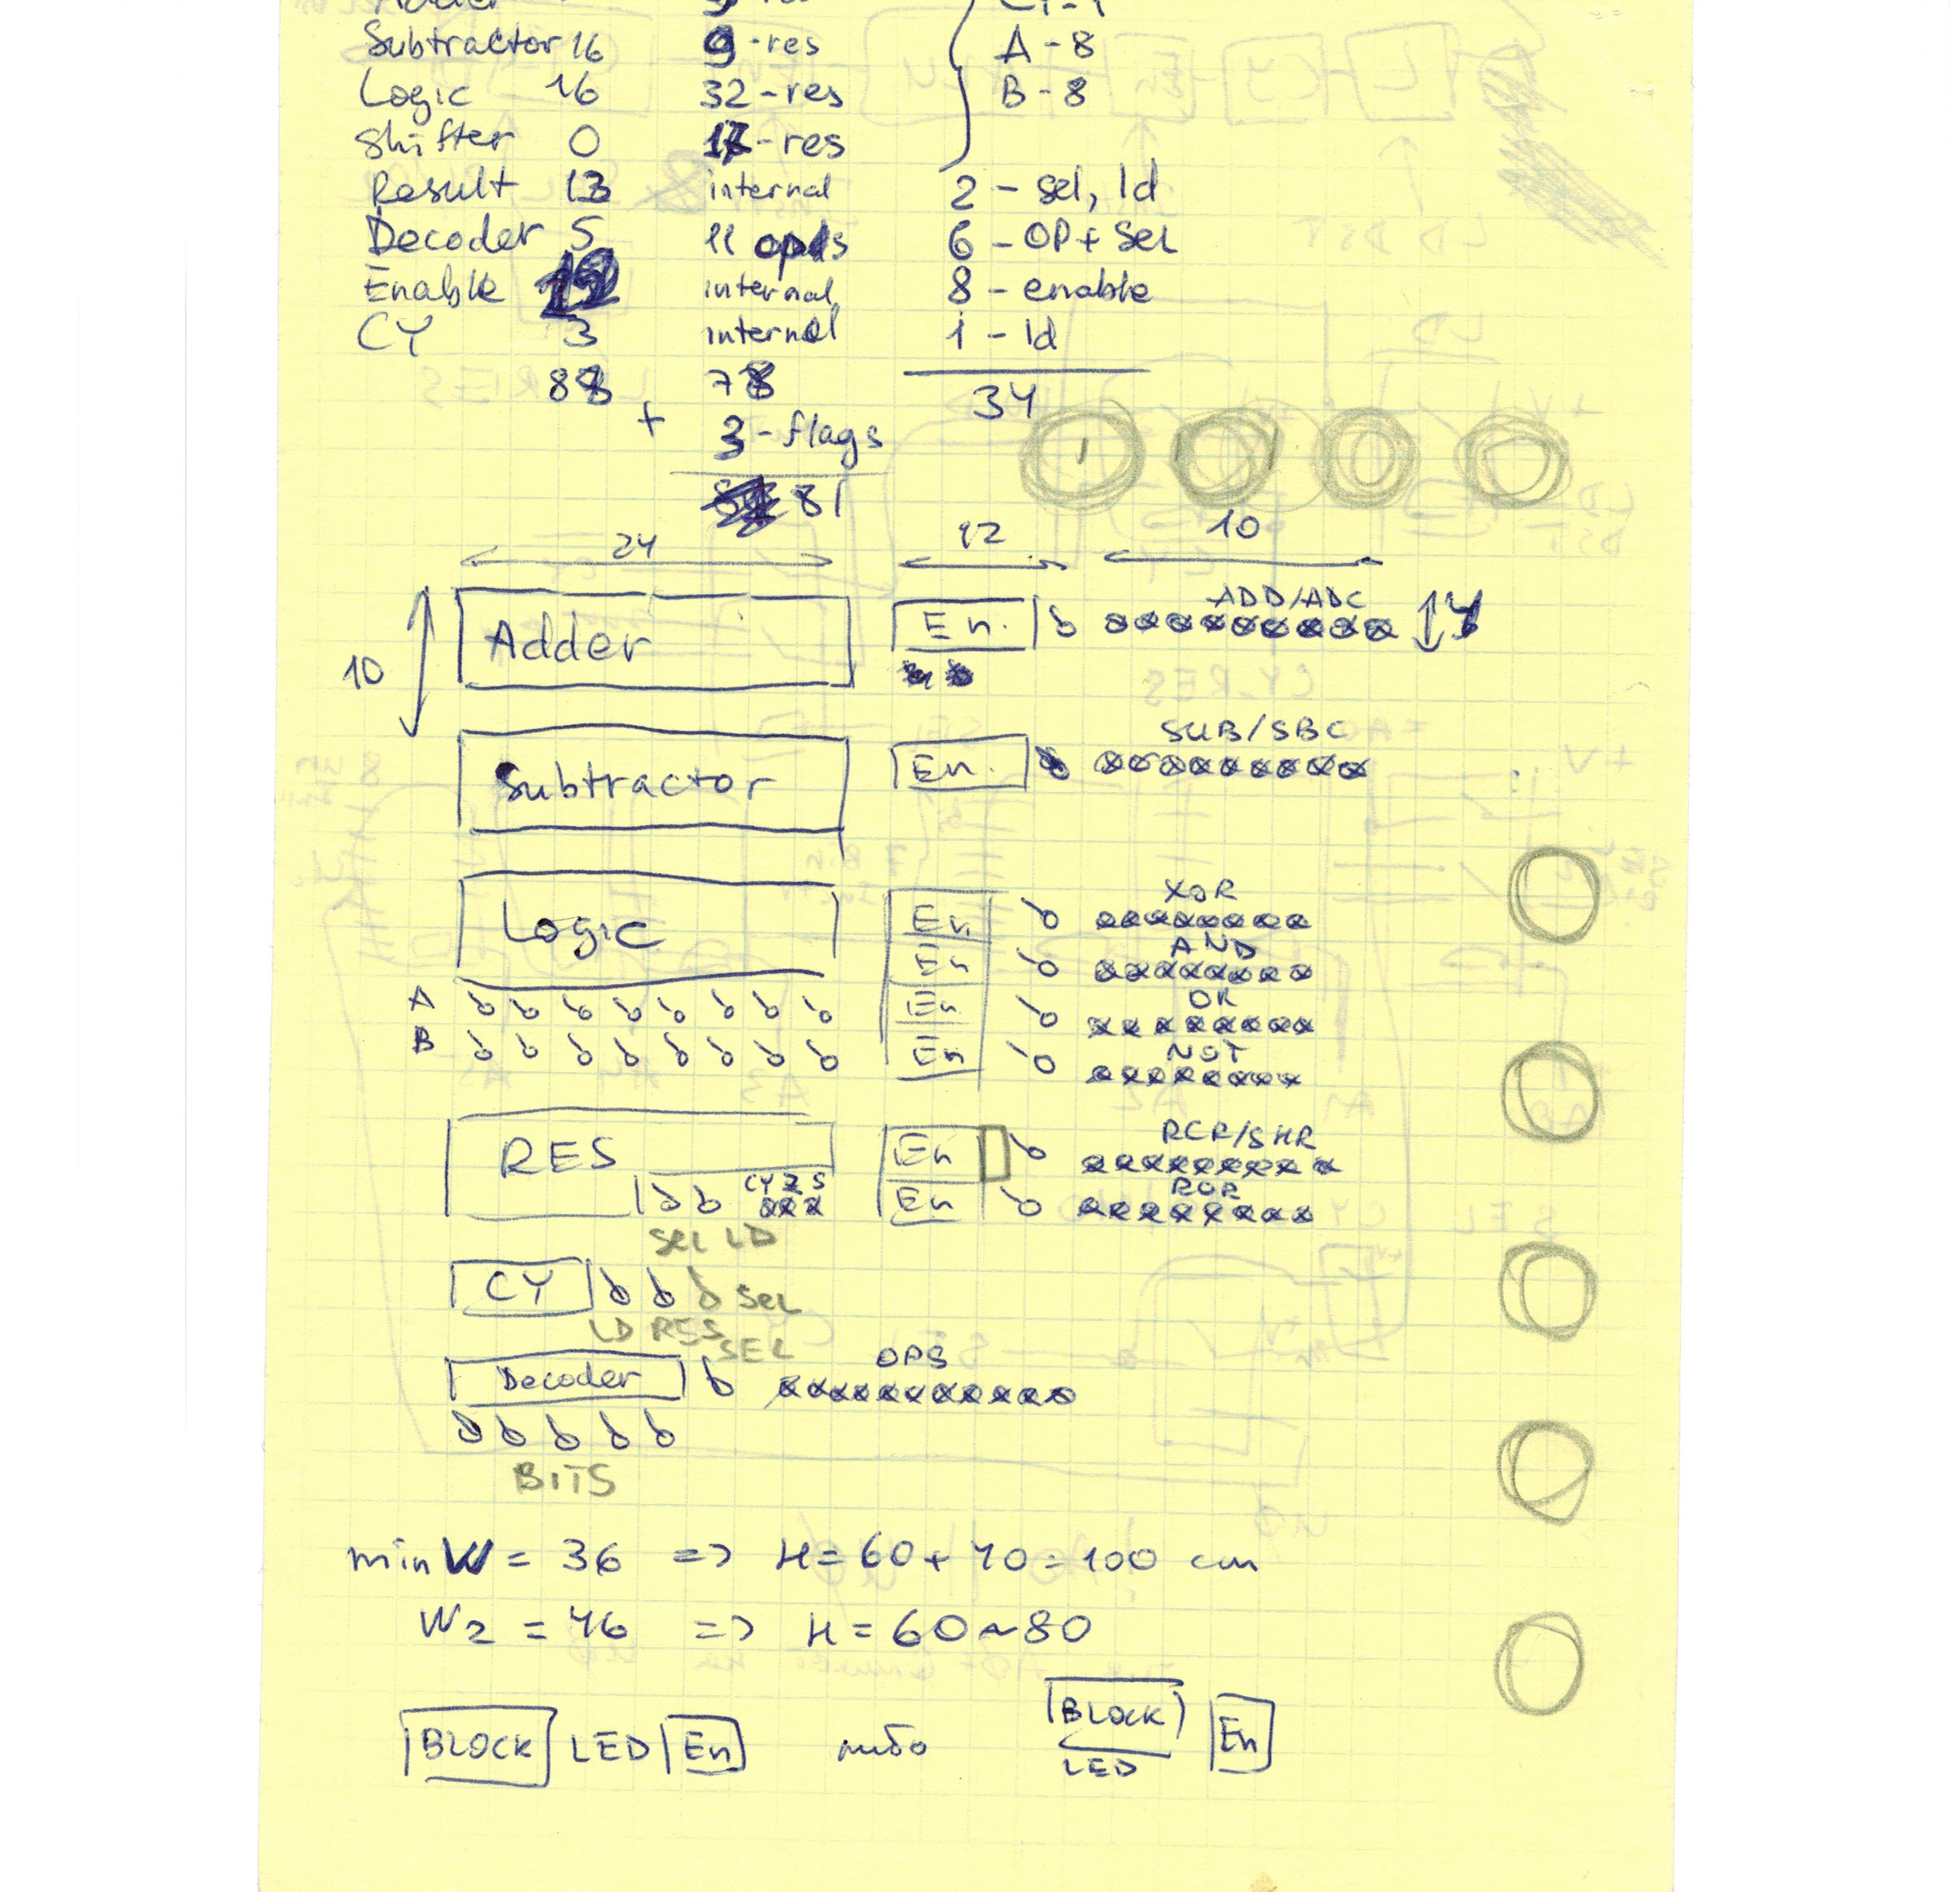 Subtractor 16 9-res A-8
Logic 16 32-res B-8
Shifter 0 17-res
Result 13 internal 2 - sel, ld
Decoder 5 11 opds 6 - OP + Sel
Enable internal 8 - enable
CY 3 internal 1 - ld
88 78 34
+ 3-flags
81
24 12 10
10 Adder En. ADD/ADC 4
Subtractor En. SUB/SBC
Logic En XOR
En AND
A En OR
B En NOT
RES En RCR/SHR
CY Z S En ROR
Sel LD
CY Sel
LD RES SEL
Decoder OPS
BITS
min W = 36 => H = 60 + 40 = 100 cm
W2 = 46 => H = 60 ~ 80
BLOCK LED En либо BLOCK LED En